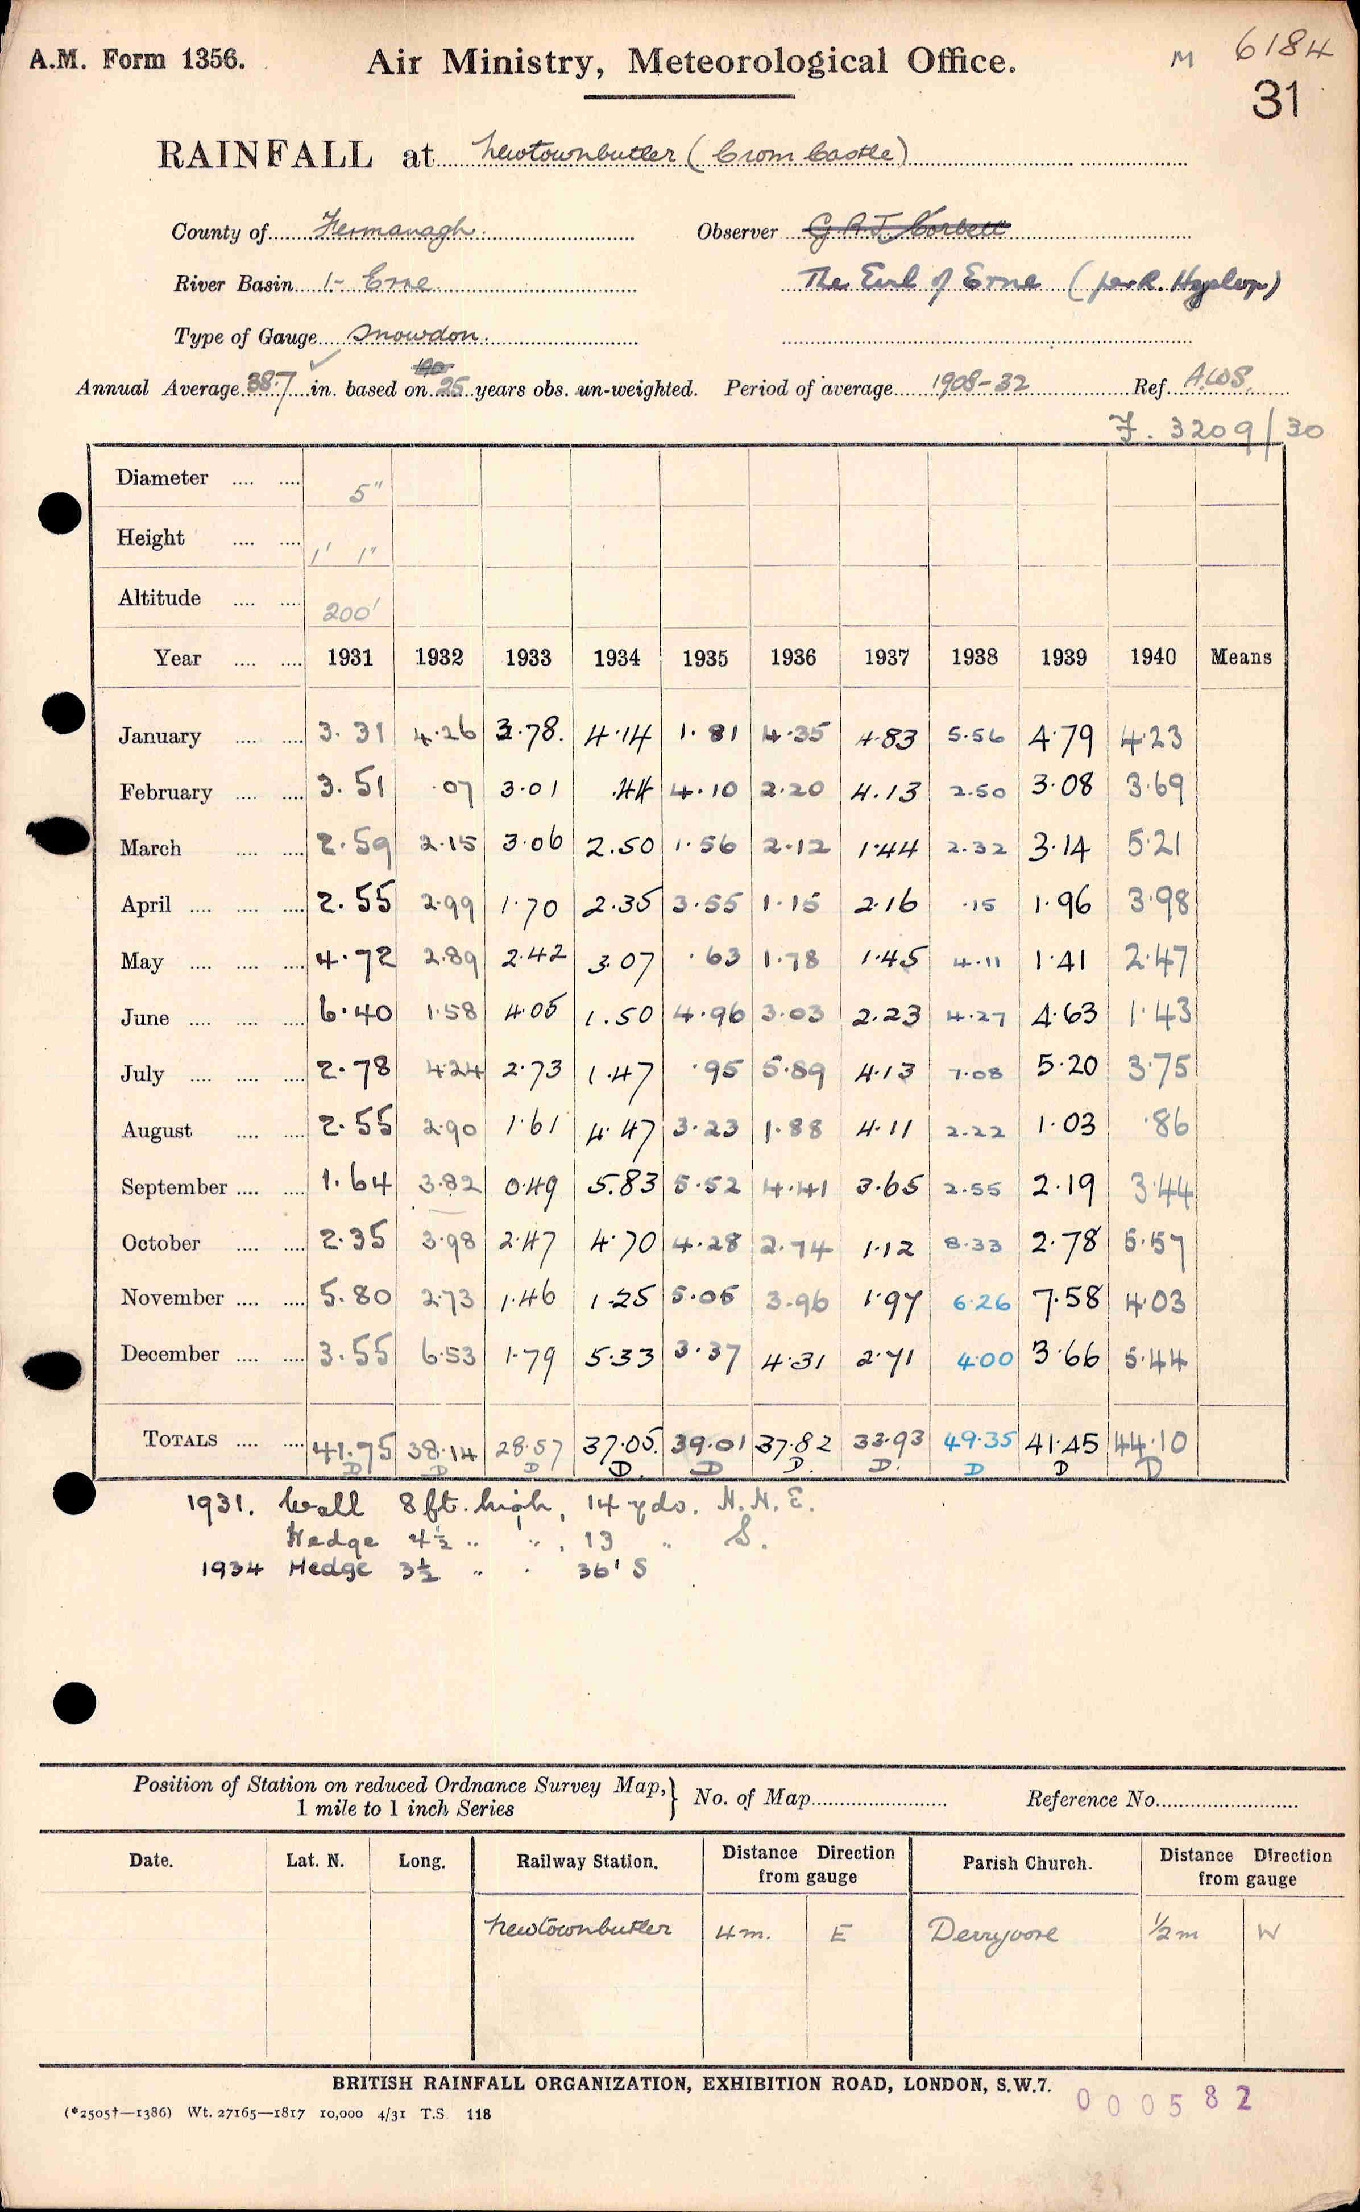 A.M. Form 1356.
Air Ministry, Meteorological Office.
M 6184
31
RAINFALL at Newtownbutler (Crom Castle)
County of Fermanagh Observer G.R.J. Corbett
River Basin 1- Erne The Earl of Erne (per R. Hyslop)
Type of Gauge Snowdon
Annual Average 38.7 in. based on 25 years obs. un-weighted. Period of average 1908-32 Ref. A.W.S.
F. 3209/30
Diameter 5"
Height 1' 1"
Altitude 200'
Year 1931 1932 1933 1934 1935 1936 1937 1938 1939 1940 Means
January 3.31 4.26 3.78 4.14 1.81 4.35 4.83 5.56 4.79 4.23
February 3.51 .07 3.01 .44 4.10 2.20 4.13 2.50 3.08 3.69
March 2.59 2.15 3.06 2.50 1.56 2.12 1.44 2.32 3.14 5.21
April 2.55 2.99 1.70 2.35 3.55 1.15 2.16 .15 1.96 3.98
May 4.72 2.89 2.42 3.07 .63 1.78 1.45 4.11 1.41 2.47
June 6.40 1.58 4.05 1.50 4.96 3.03 2.23 4.27 4.63 1.43
July 2.78 4.24 2.73 1.47 .95 5.89 4.13 7.08 5.20 3.75
August 2.55 2.90 1.61 4.47 3.23 1.88 4.11 2.22 1.03 .86
September 1.64 3.82 0.49 5.83 5.52 4.41 3.65 2.55 2.19 3.44
October 2.35 3.98 2.47 4.70 4.28 2.74 1.12 8.33 2.78 5.57
November 5.80 2.73 1.46 1.25 5.05 3.96 1.97 6.26 7.58 4.03
December 3.55 6.53 1.79 5.33 3.37 4.31 2.71 4.00 3.66 5.44
TOTALS 41.75 38.14 28.57 37.05 39.01 37.82 33.93 49.35 41.45 44.10
D D D D D D D D D D
1931. Wall 8 ft. high, 14 yds. N.N.E.
Hedge 4½ " ", 13 " S.
1934 Hedge 3½ " " 36' S
Position of Station on reduced Ordnance Survey Map,} No. of Map Reference No.
1 mile to 1 inch Series
Date. Lat. N. Long. Railway Station. Distance Direction from gauge Parish Church. Distance Direction from gauge
Newtownbutler 4 m. E Derryvore ½ m W
BRITISH RAINFALL ORGANIZATION, EXHIBITION ROAD, LONDON, S.W.7.
000582
(*2505†—1386) Wt. 27165—1817 10,000 4/31 T.S. 118